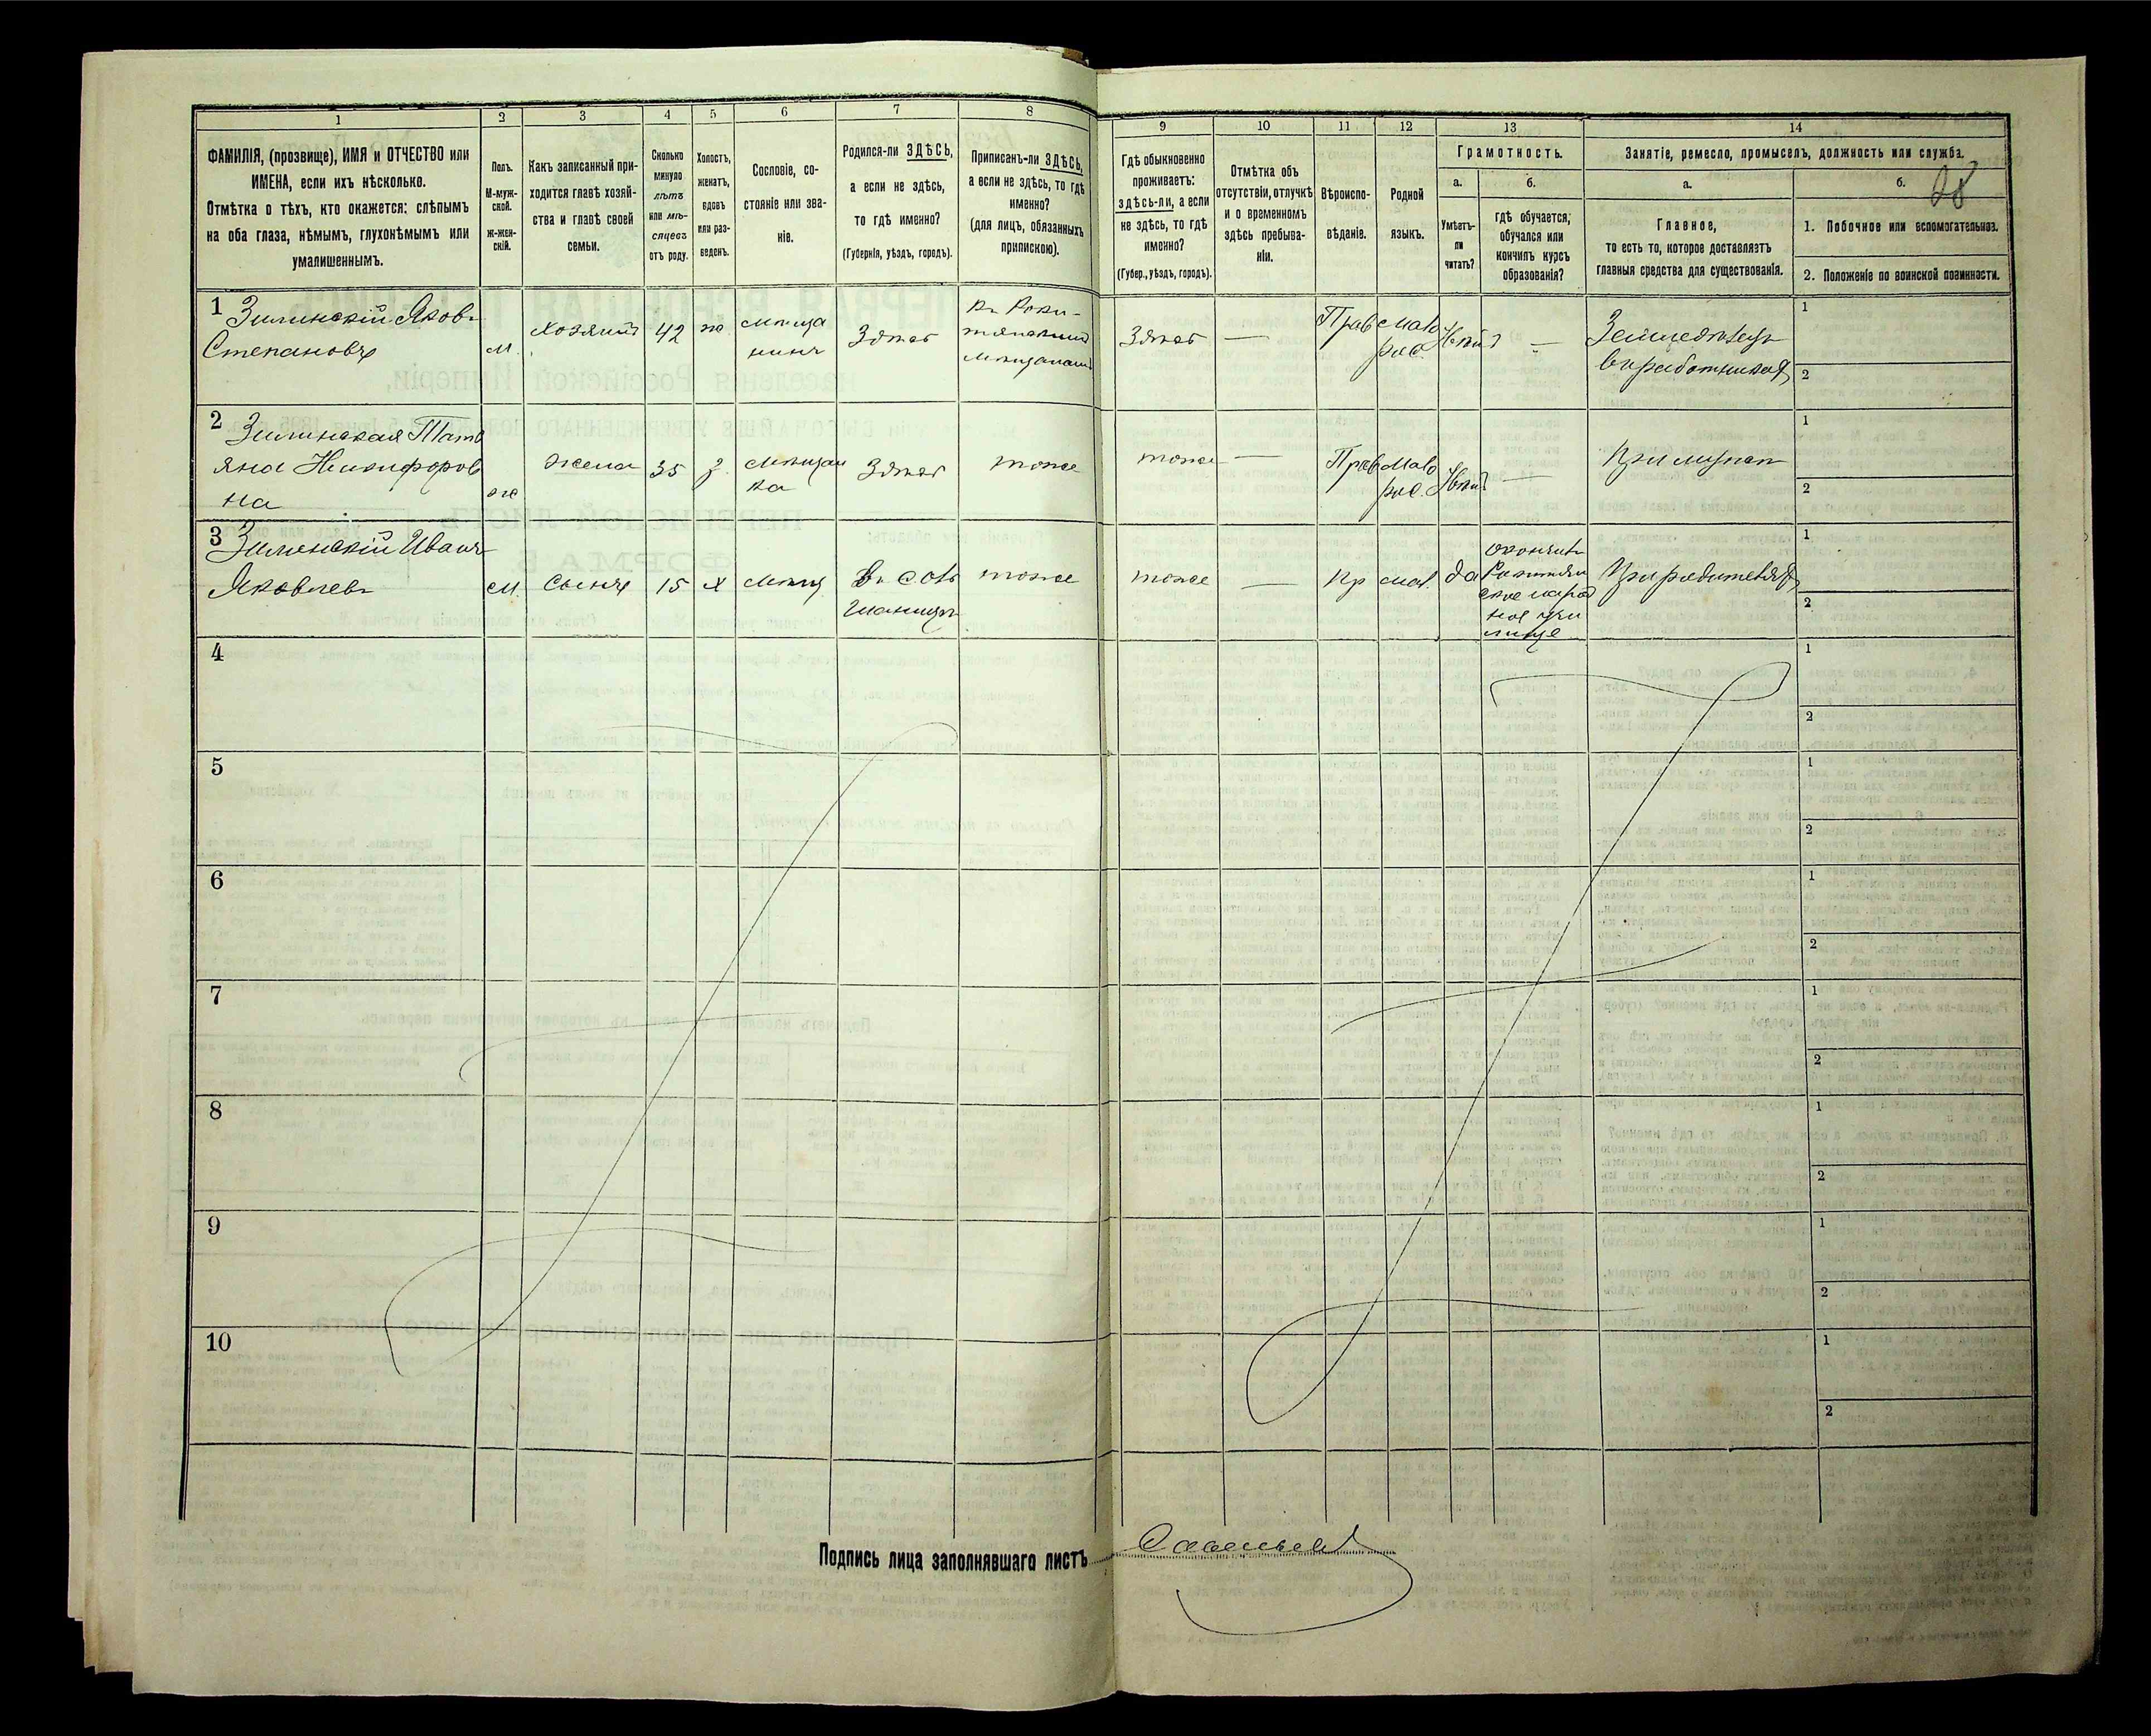 1
2
3
4
5
6
7
8
ФАМИЛІЯ, (прозвище), ИМЯ и ОТЧЕСТВО или
ИМЕНА, если ихъ нѣсколько.
Отмѣтка о тѣхъ, кто окажется: слѣпымъ
на оба глаза, нѣмымъ, глухонѣмымъ или
умалишеннымъ.
Полъ.
М-муж-
ской.
Ж-жен-
скій.
Какъ записанный при-
ходится главѣ хозяй-
ства и главѣ своей
семьи.
Сколько
минуло
лѣтъ
или мѣ-
сяцевъ
отъ роду.
Холостъ,
женатъ,
вдовъ
или раз-
веденъ.
Сословіе, со-
стояніе или зва-
ніе.
Родился-ли ЗДѢСЬ,
а если не здѣсь,
то гдѣ именно?
(Губернія, уѣздъ, городъ).
Приписанъ-ли ЗДѢСЬ,
а если не здѣсь, то гдѣ
именно?
(для лицъ, обязанныхъ
припискою).
9
10
11
12
13
14
Гдѣ обыкновенно
проживаетъ:
здѣсь-ли, а если
не здѣсь, то гдѣ
именно?
(Губер., уѣздъ, городъ).
Отмѣтка объ
отсутствіи, отлучкѣ
и о временномъ
здѣсь пребыва-
ніи.
Вѣроиспо-
вѣданіе.
Родной
языкъ.
Грамотность.
а.
Умѣетъ-
ли
читать?
б.
гдѣ обучается,
обучался или
кончилъ курсъ
образованія?
Занятіе, ремесло, промыселъ, должность или служба.
а.
Главное,
то есть то, которое доставляетъ
главныя средства для существованія.
б.
1. Побочное или вспомогательное.
2. Положеніе по воинской повинности.
1 Зилинскій Яковъ
Степановъ
м.
хозяинъ
42
ж
мѣща
нинъ
Здѣсь
Здѣсь
—
Прав
мало
рос.
Нѣтъ
—
Земледѣлецъ
въ работникахъ
1
2
2 Зилинская Тать
яна Никифоров
на
ж
жена
35
з.
мѣщан
ка
Здѣсь
тоже
тоже
—
Прав
мало
рос.
Нѣтъ
—
При мужѣ
1
2
3 Зилинскій Иванъ
Яковлевъ
м.
сынъ
15
х
мѣщ
тоже
тоже
—
Пр
мал.
да
При родителяхъ
1
2
4
1
2
5
1
2
6
1
2
7
1
2
8
1
2
9
1
2
10
1
2
Подпись лица заполнявшаго листъ